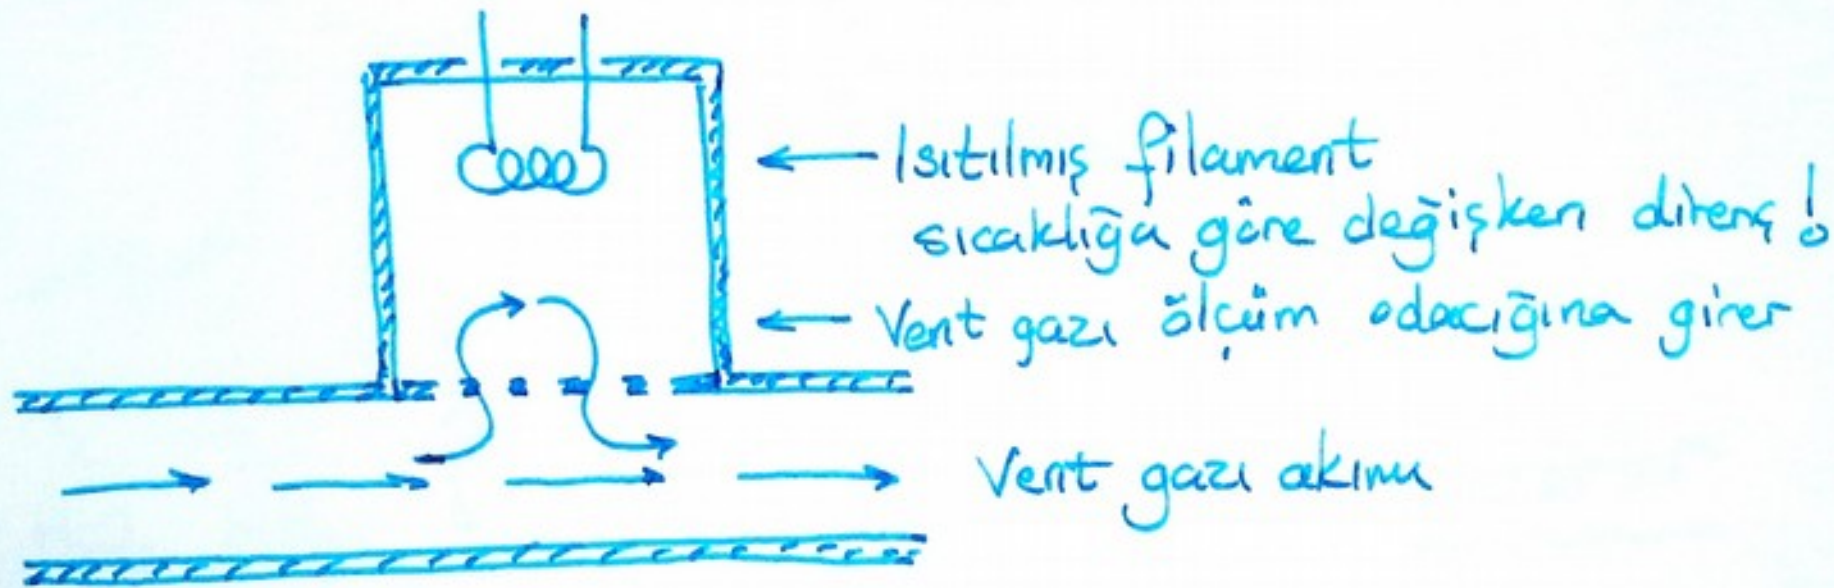 Isıtılmış filament
sıcaklığa göre değişken direnç!
Vent gazı ölçüm odacığına girer
Vent gazı akımı